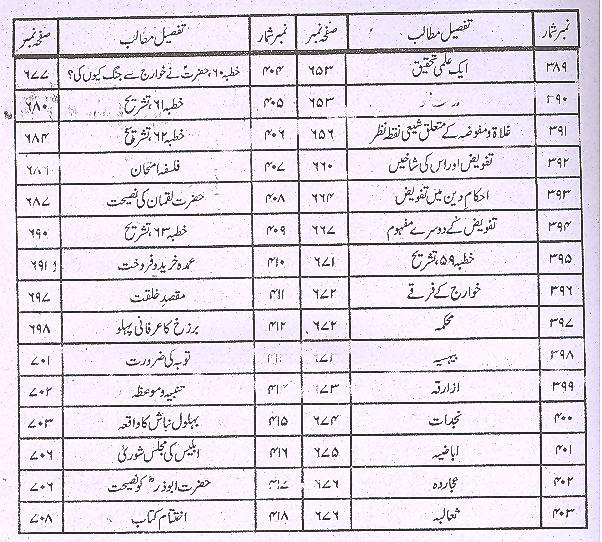 نمبر شمار تفصیل مطالب صفحہ نمبر نمبر شمار تفصیل مطالب صفحہ نمبر
۳۸۹ ایک علمی تحقیق ۶۵۳ ۴۰۴ خطبہ ۶۰، حضرتؑ نے خوارج سے جنگ کیوں کی؟ ۶۷۷
۳۹۰ ۶۵۳ ۴۰۵ خطبہ ۶۱، تشریح ۶۸۰
۳۹۱ غلاۃ و مفوضہ کے متعلق شیعی نقطہ نظر ۶۵۶ ۴۰۶ خطبہ ۶۲، تشریح ۶۸۴
۳۹۲ تفویض اور اس کی شاخیں ۶۶۰ ۴۰۷ فلسفہ امتحان ۶۸۶
۳۹۳ احکام دین میں تفویض ۶۶۴ ۴۰۸ حضرت لقمان کی نصیحت ۶۸۷
۳۹۴ تفویض کے دوسرے مفہوم ۶۶۷ ۴۰۹ خطبہ ۶۳، تشریح ۶۹۰
۳۹۵ خطبہ ۵۹، تشریح ۶۷۱ ۴۱۰ عمدہ خرید و فروخت ۶۹۱
۳۹۶ خوارج کے فرقے ۶۷۲ ۴۱۱ مقصدِ خلقت ۶۹۷
۳۹۷ محکمہ ۶۷۲ ۴۱۲ برزخ کا عرفانی پہلو ۶۹۸
۳۹۸ بیہسیہ ۶۷۲ توبہ کی ضرورت ۷۰۱
۳۹۹ ازارقہ ۶۷۳ تنبیہ و موعظہ ۷۰۲
۴۰۰ نجدات ۶۷۴ ۴۱۵ بہلول نباش کا واقعہ ۷۰۳
۴۰۱ اباضیہ ۶۷۵ ۴۱۶ ابلیس کی مجلس شوریٰ ۷۰۶
۴۰۲ عجاردہ ۶۷۶ ۴۱۷ حضرت ابوذرؓ کو نصیحت ۷۰۶
۴۰۳ ثعالبہ ۶۷۶ ۴۱۸ اختتام کتاب ۷۰۸